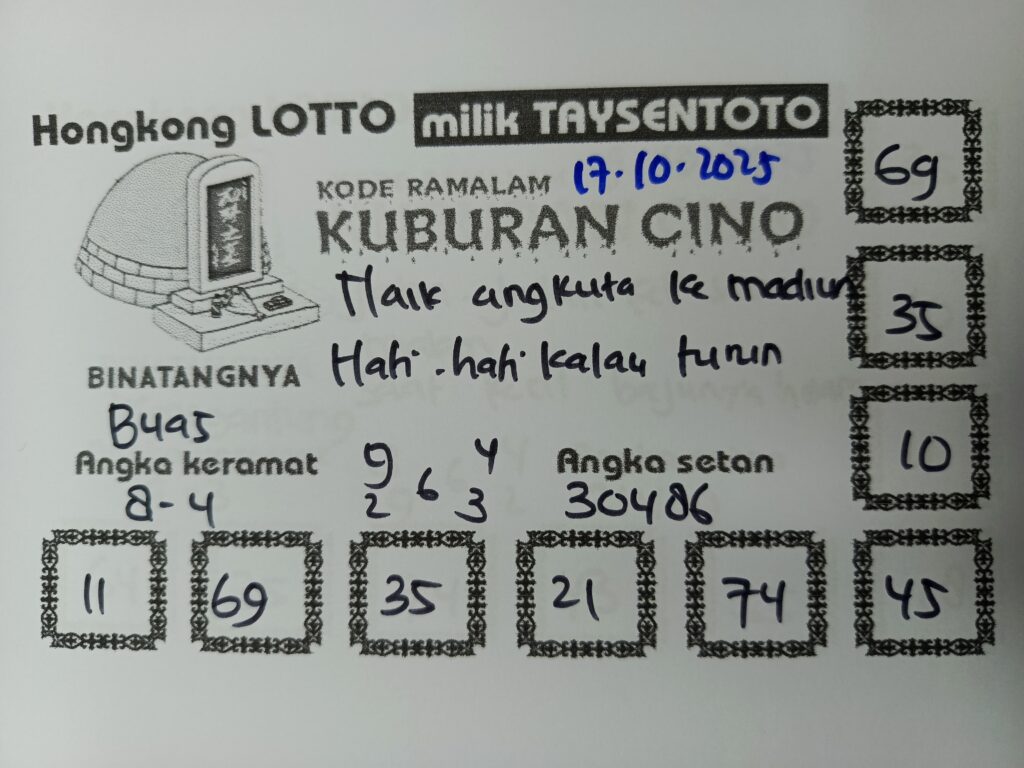 Hongkong LOTTO milik TAYSENTOTO
KODE RAMALAM 17.10.2025
KUBURAN CINO
Naik angkuta ke madiun
Hati-hati kalau turun
BINATANGNYA
Buas
Angka keramat
8-4
9 4
6
2 3
Angka setan
30486
69
35
10
11 69 35 21 74 45